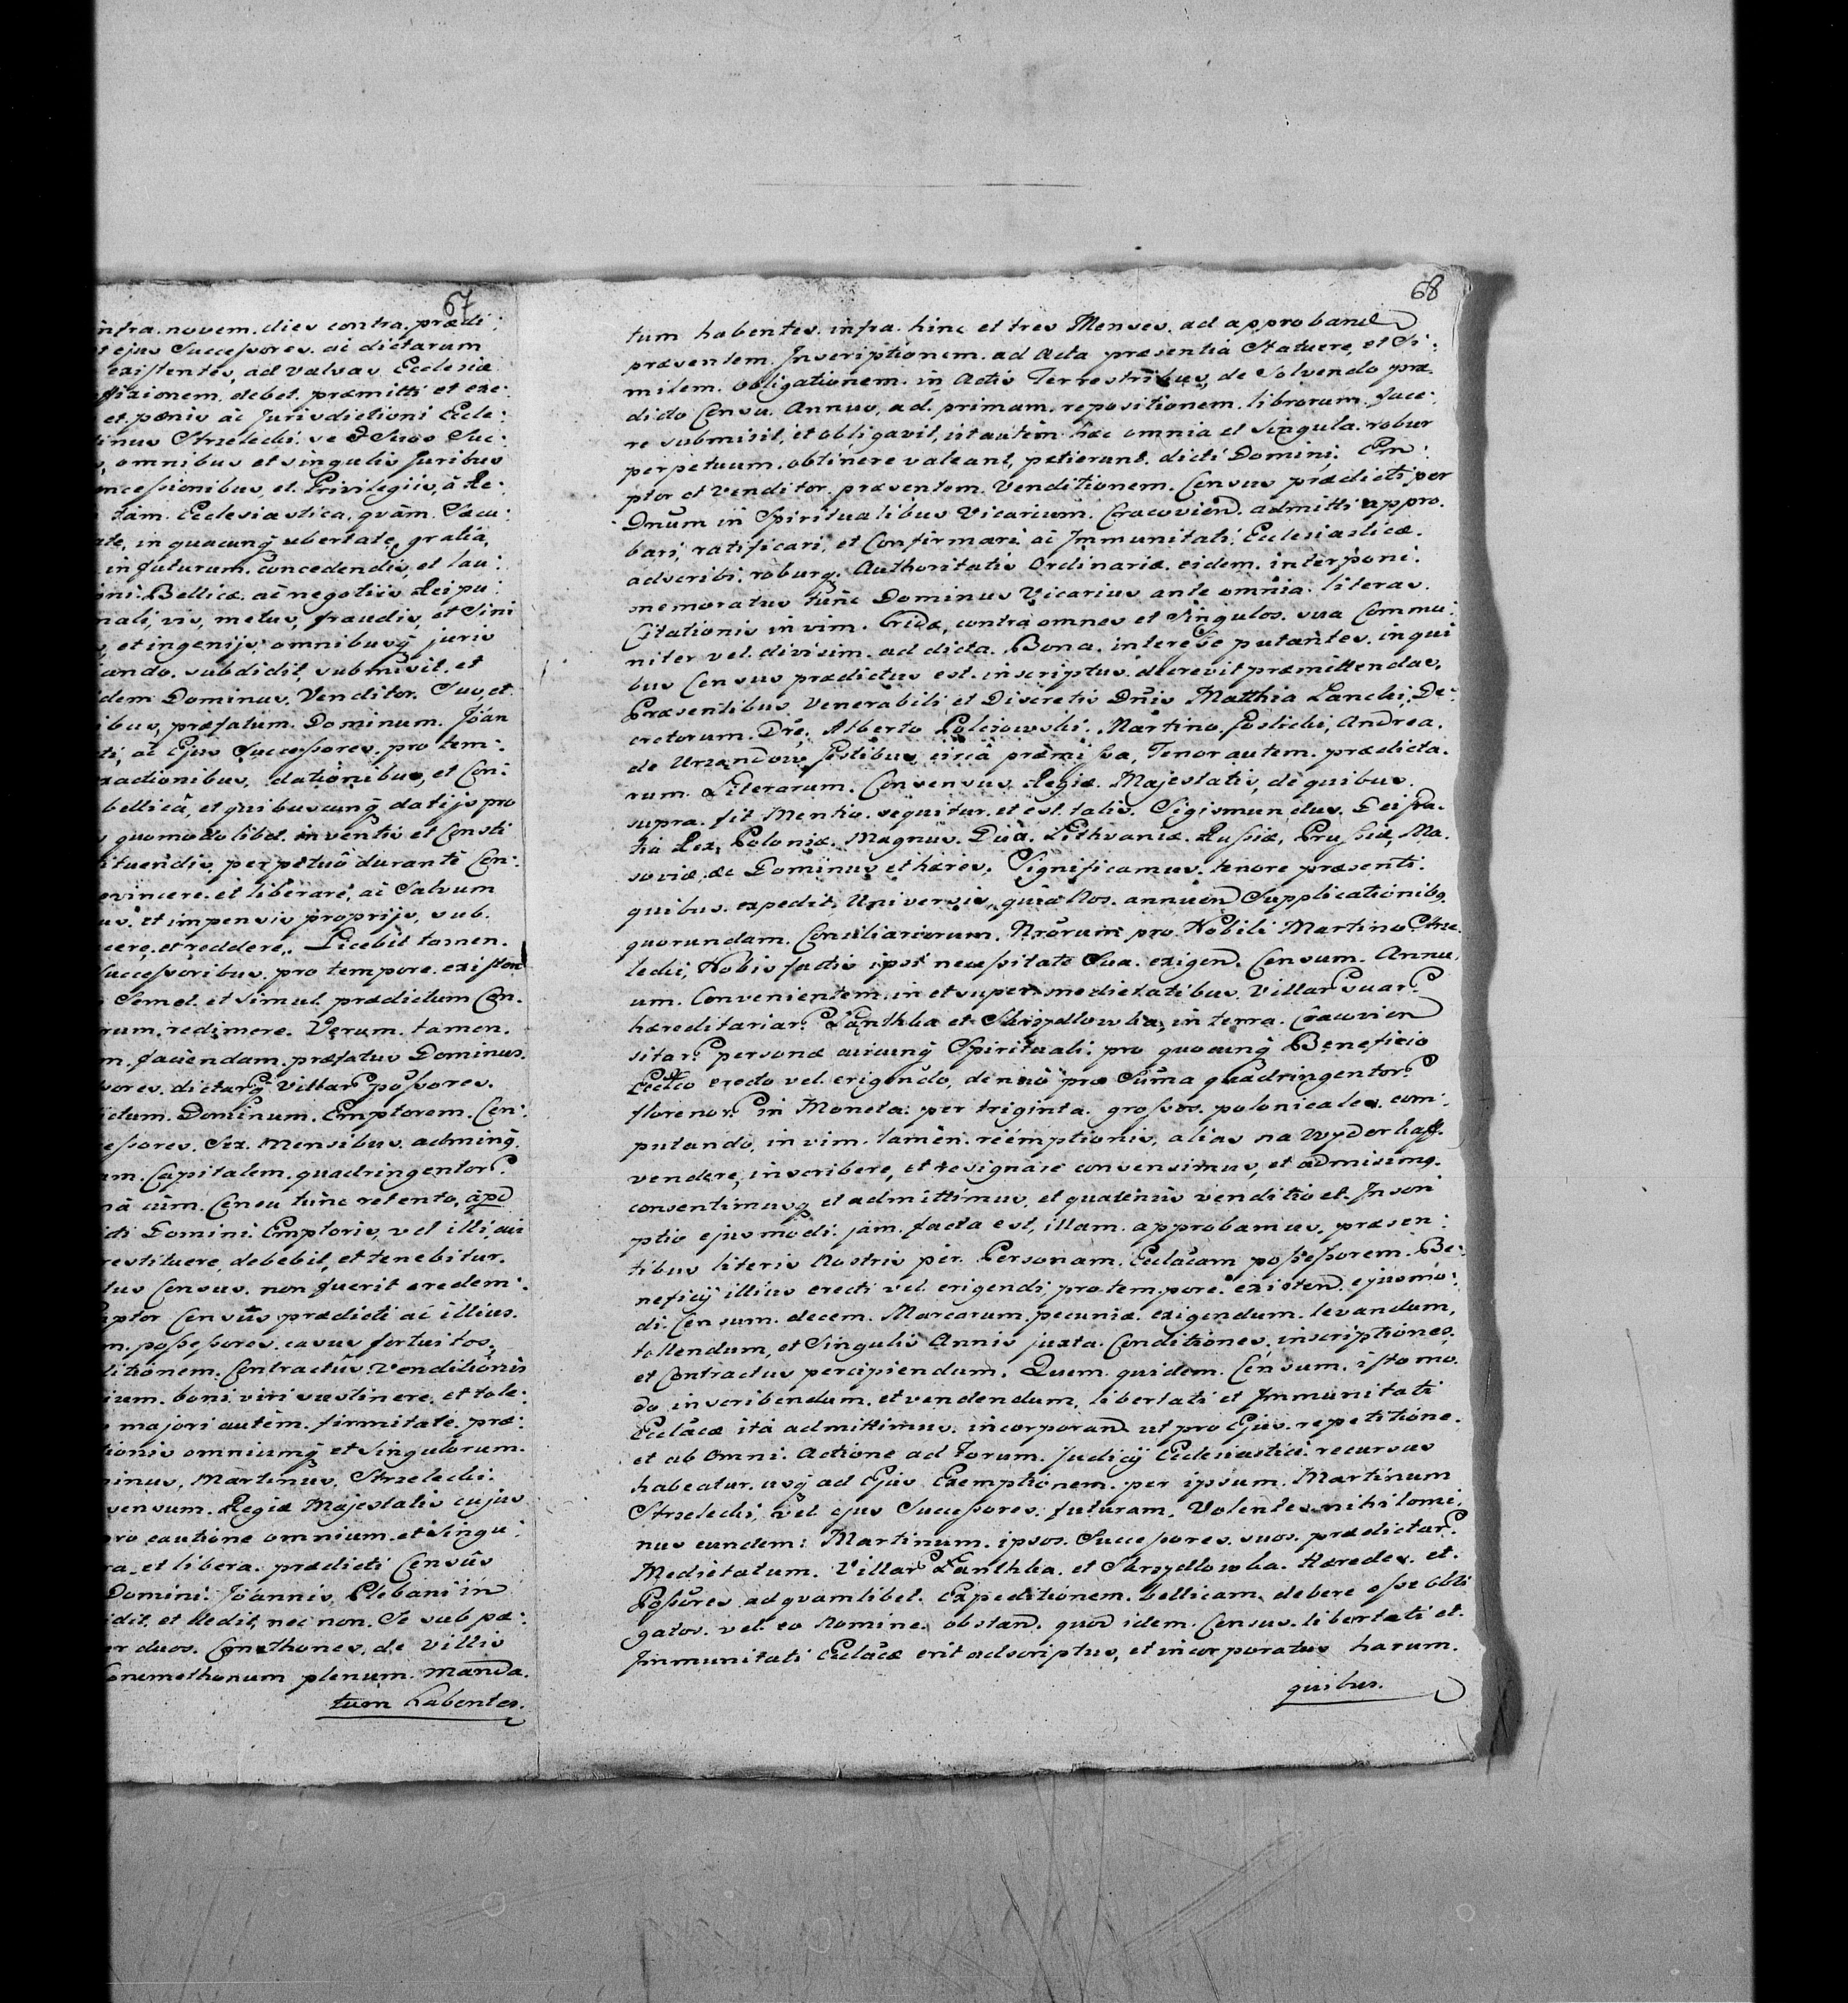 67
intra. novem. dies contra. prædi:
et ejus Successores. ac dictarum
existentes, ad valvas Ecclesiæ
affixionem. debet. præmitti et exe:
et pœnis ac Jurisdictioni Eccle:
tinus Strzelecki. se et Suos Suc:
s, omnibus et singulis Juribus
oncessionibus, et Privilegiis, à Re:
tàm. Ecclesiastica, quàm. Sæcu:
ate, in quacunq́ ubertate, gratia,
in futurum. concedendis, et lau:
oni: Bellicæ. ac negotiis Reipu:
nali, vis, metus, fraudis, et Sini
s, et ingenijs omnibusq́ juris
iando. subdidit. submisit. et
idem Dominus. Venditor. Suo, et.
ibus, præfatum. Dominum. Jóan
ti, ac Ejus Successores. pro tem:
xactionibus, dationibus, et Con:
bellicâ, et quibuscunq́ datijs pro
s quomodo libet. inventis et Consti
tituendis, perpetuô duranti Con:
evincere. et liberare, ac Salvum
us. et impensis proprijs, sub.
cere, et reddere,. Licebit tamen.
Successoribus. pro tempore. existen
Semel. et simul. prædictum Cen.
rum. redimere. Verum. tamen.
m. faciendam. præfatus Dominus.
sores. dictarq́ Villar. possores.
ictum. Dominum. Emptorem. Cen:
essores. Sex. Mensibus. adminq́.
am. Capitalem. quadringentor.
nâ cùm. Censu tùnc retento, apd
icti Domini: Emptoris, vel illi, cui
restituere, debebit, et tenebitur.
tus Census. non fuerit eredem:
mptor Censûs prædicti ac illius.
m. possessores. casus fortuitos.
ditionem. Contractus. Venditionis
ium. boni viri sustinere. et tole:
majori autèm. firmitate. præ:
tionis omniumq́ et singulorum.
minus, Martinus, Strzelecki.
sensum. Regiæ Majestatis cujus
pro cautione omnium. et singu:
ra. et libera. prædicti Censûs
Domini: Jóannis, Plebani in
idit. et dedit, nec non. Se sub pæ:
er duos. Cmethones, de Villis
onemethonum plenum. manda.
tum habentes.
68
tum habentes. infra. hinc et tres Menses. ad approband
præsentem. Inscriptionem. ad Acta præsentia Statuere, et Si:
milem. obligationem. in Actis Terrestribus, de Solvendo præ
dicto Censu. Annuo, ad. primam. repositionem. librorum. face:
re submisit, et obligavit, ut autèm hæc omnia et singula. robur
perpetuum. obtinere valeant, petierunt. dicti Domini. Em:
ptor et Venditor. præsentem. Venditionem. Census prædicti per
Dnum in Spiritualibus Vicarium. Cracovien. admitti appro.
bari, ratificari, et Confirmari. ac Immunitati. Ecclesiasticæ.
adscribi. roburq. Authoritatis Ordinariæ. eidem. interponi.
memoratus tunc Dominus Vicarius ante omnia. literas.
Citationis in vim. Cridæ, contra omnes et Singulos. sua Commu:
niter vel. divisim. ad dicta. Bona. interesse putantes. in qui
bus Census prædictus est. inscriptus. decrevit præmittendas,
Præsentibus. Venerabili et Discretis Dnis Matthia Lancki; De:
cretorum. Dre, Alberto Polejowski. Martino. Goslicki, Andrea.
de Urzandow testibus circà præmissa, Tenor autem. prædicta.
rum. Literarum. Consensus. Regiæ. Majestatis, de quibus.
supra. fit Mentio. sequitur. et est talis. Sigismundus. Dei Gra.
tia Rex, Poloniæ. Magnus. Dux. Lithvaniæ. Russiæ, Prussiæ, Ma.
soviæ. &c Dominus et hæres. Significamus. tenore præsenti.
quibus. expedit, Universis, quia Nos. annuen Supplicationibq.
quorundam. Consiliariorum. Nrorum pro. Nobili Martino Strze.
lecki, Nobis factis ipsi necessitate Sua. exigen. Censum. Annu.
um. Convenientem. in et super. medietatibus. Villar. suar.
hæreditariar. Łanthka et Skrzydlowka, in terra. Cracovien
sitar. personæ cuicunq́ Spirituali. pro quocunq́ Beneficio
Ecclco erecto vel. erigendo, de nuò pro Suma quadringentor.
florenor. in Moneta. per triginta. grossos. polonicales. com:
putando, in vim. tamen. reémptionis, alias na wyderkaff.
vendere, inscribere, et resignare consensimus, et admisimq.
consentimusq́ et admittimus, et quatenùs venditio et. Inscri
ptio ejusmodi. jàm. facta est, illam. approbamus, præsen:
tibus literis Nostris per. Personam. Ecclacam possessorem. Be:
neficij illius erecti vel. erigendi, pro. tempore. existen. ejusmo:
di. Censum. decem. Marcarum. pecuniæ. exigendum. levandum,
tollendum, et Singulis Annis juxta. Conditiones. inscriptiones.
et Contractus percipiendum. Quem. quidem. Censum. isto mo.
do inscribendum. et vendendum, libertati et Immunitati
Ecclacæ ità admittimus. incorporan. ut pro Ejus. repetitione.
et ab Omni. Actione ad Forum. Judicij Ecclesiastici. recursus
habeatur. usq́ ad Ejus Exemptionem. per ipsum. Martinum
Strzelecki, vel ejus Successores. futuram. Volentes nihilomi:
nus eundem: Martinum. ipsos. Successores. suos. prædictar.
Medietatum. Villar. Łanthka. et Skrzydlowka. Hæredes. et.
Possores ad quamlibet. Expeditionem. bellicam. debere esse obli
gatos. vel. eo Nomine. obstan. quod idem. Census. libertati et.
Immunitati Ecclacæ erit adscriptus, et incorporatus harum.
quibus.